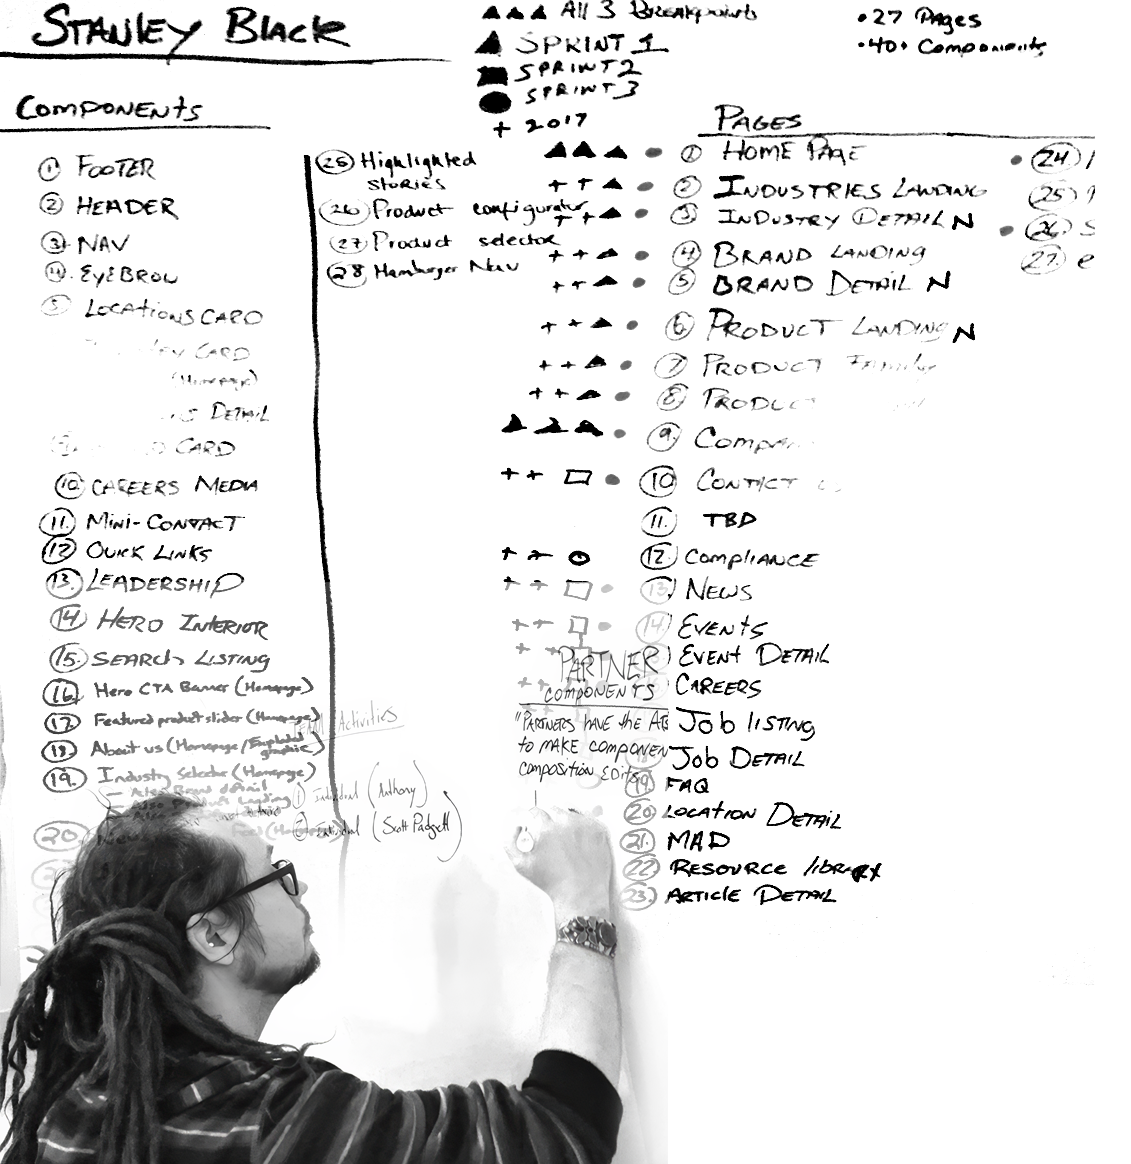 STANLEY BLACK
All 3 BREAKPOINTS
SPRINT 1
SPRINT 2
SPRINT 3
+ 2017
• 27 PAGES
• 40+ Components
COMPONENTS
1 FOOTER
2 HEADER
3. NAV
4. EYEBROW
5 LOCATIONS CARD
CARD
(Homepage)
DETAIL
CARD
10. CAREERS MEDIA
11. MINI-CONTACT
12 QUICK LINKS
13. LEADERSHIP
14 HERO INTERIOR
15. SEARCH LISTING
16. Hero CTA Banner (Homepage)
17. Featured product slider (Homepage)
18. About us (Homepage/
19. Industry Selector (Homepage)
- Also Brand detail
20.
25 Highlighted
stories
26 Product configurator
27 Product selector
28 Hamburger Nav
Activities
1 Individual (Anthony)
2 Individual (Scott Padgett)
PAGES
1 HOME PAGE
2 INDUSTRIES LANDING
3 INDUSTRY DETAIL N
4 BRAND LANDING
5 BRAND DETAIL N
6 PRODUCT LANDING N
7 PRODUCT FAMILY
8 PRODUCT
9 COMPAN
10 CONTACT
11. TBD
12. COMPLIANCE
13. NEWS
14 EVENTS
EVENT DETAIL
CAREERS
JOB LISTING
18 JOB DETAIL
19. FAQ
20. LOCATION DETAIL
21. MAD
22. RESOURCE LIBRARY
23. ARTICLE DETAIL
24.
25
26. S
27. e
PARTNER
COMPONENTS
"PARTNERS HAVE the AB
to MAKE COMPONEN
COMPOSITION EDITS